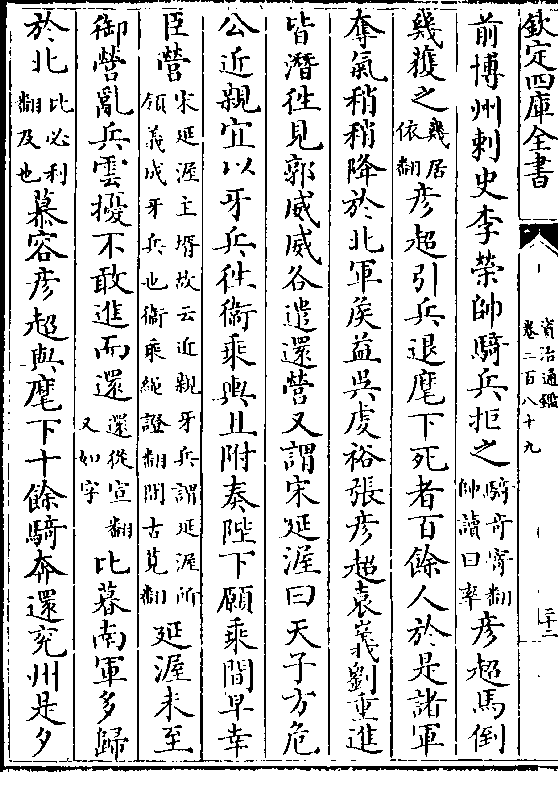 欽定四庫全書
資治通鑑
卷二百八十九
二十二
前博州刺史李榮帥騎兵拒之騎奇寄翻帥讀曰率彦超馬倒
幾獲之幾居依翻彦超引兵退麾下死者百餘人於是諸軍
奪氣稍稍降於北軍侯益吳䖍裕張彦超袁㠖劉重進
皆潛徃見郭威威各遣還營又謂宋延渥曰天子方危
公近親宜以牙兵徃衞乘輿且附奏陛下願乘間早幸
臣營宋延渥主壻故云近親牙兵謂延渥所領義成牙兵也衞乘䋲證翻間古莧翻延渥未至
御營亂兵雲擾不敢進而還還從宣翻又如字比暮南軍多歸
於北比必利翻及也慕容彦超與麾下十餘騎奔還兖州是夕